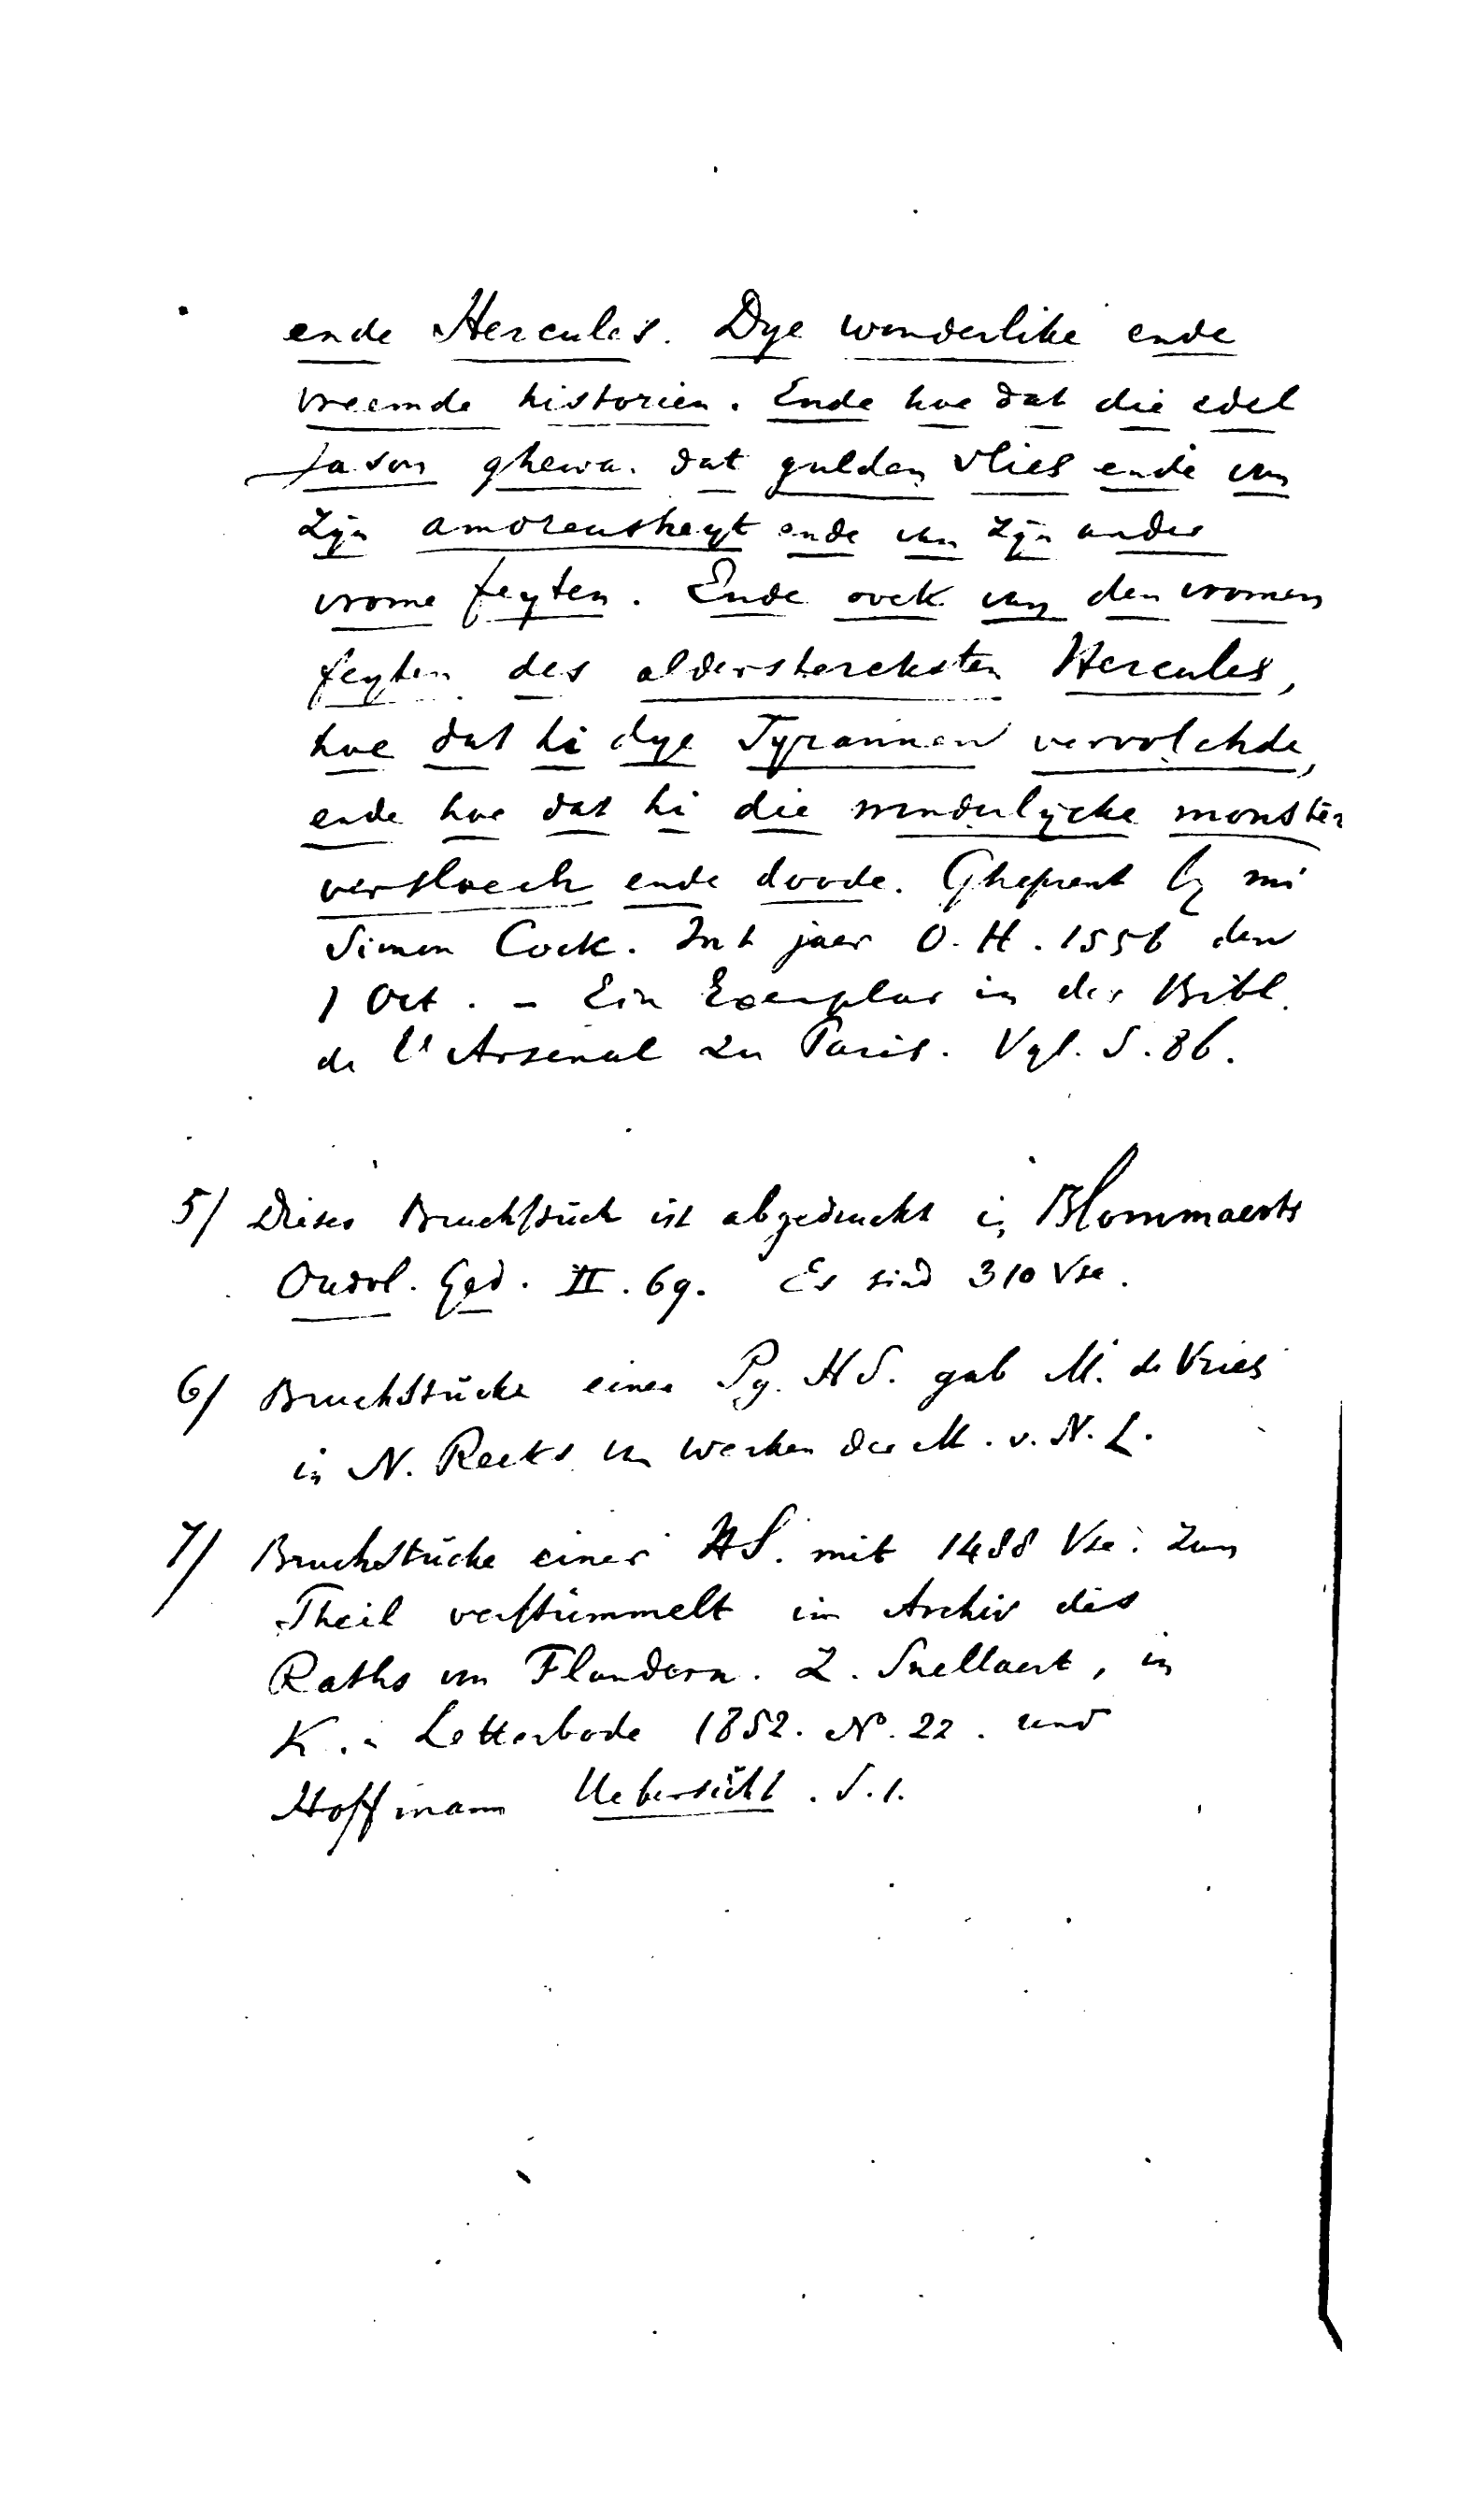 ende Hercules. Dye wonderlike ende
vreemde historien. Ende hoe dat die edel
Jason ghewa. dat gulden vlies ende van
Zijn amoreusheyt ende van Zijn ander
vrome feyten. Ende oock van den vromen
feyten des alderstercksten Hercules,
hoe dat hi dye Tyrannen vervolchde,
ende hoe dat hi die wnderlycke monster
versloech ende doode. Gheprent by mi
Simon Cock. Int jaer O. H. 1556 den
1 Oct. - Ein Exemplar in der Bibl.
de l'Arsenal zu Paris. Vgl. S. 86.
5/ Dieses Bruchstück ist abgedruckt in Blommaerts
Oudvl. Ged. II. 69. Es sind 310 Vse.
6/ Bruchstücke einer Pg. HS. gab M. de Vries
in N. Reeks van Werken der M. v. N. L.
7/ Bruchstücke einer HS. mit 1488 Vse. Zum
Theil verstümmelt im Archiv des
Raths von Flandern. Z. Snellaert, in
K. Letterbode 1852. No. 22. und
Hoffmann Uebersicht. S. 1.